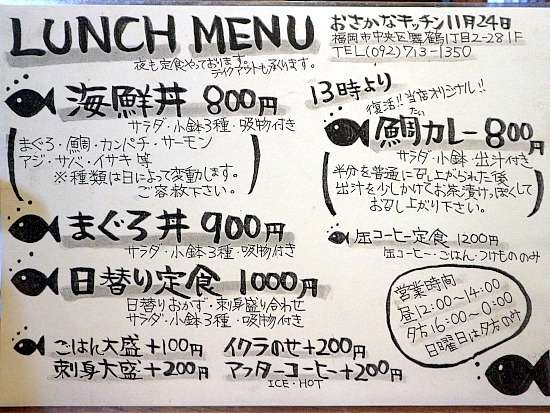 LUNCH MENU
夜も定食やっております。
テイクアウトも承ります。
おさかなキッチン11月24日
福岡市中央区舞鶴1丁目2-28 1F
TEL(092)713-1350
海鮮丼 800円
サラダ・小鉢3種・吸物付き
まぐろ・鯛・カンパチ・サーモン
アジ・サバ・イサキ 等
※種類は日によって変動します。
ご容赦下さい。
まぐろ丼 900円
サラダ・小鉢3種・吸物付き
日替り定食 1000円
日替りおかず・刺身盛り合わせ
サラダ・小鉢3種・吸物付き
ごはん大盛+100円
刺身大盛+200円
イクラのせ+200円
アフターコーヒー+200円
ICE・HOT
13時より
復活!!当店オリジナル!!
たい
鯛カレー800円
サラダ・小鉢・出汁付き
半分を普通に召し上がられた後
出汁を少しかけてお茶漬けっぽくして
お召し上がり下さい。
缶コーヒー定食 1200円
缶コーヒー・ごはん・つけもののみ
営業時間
昼12:00~14:00
夕方16:00~0:00
日曜日は夕方のみ